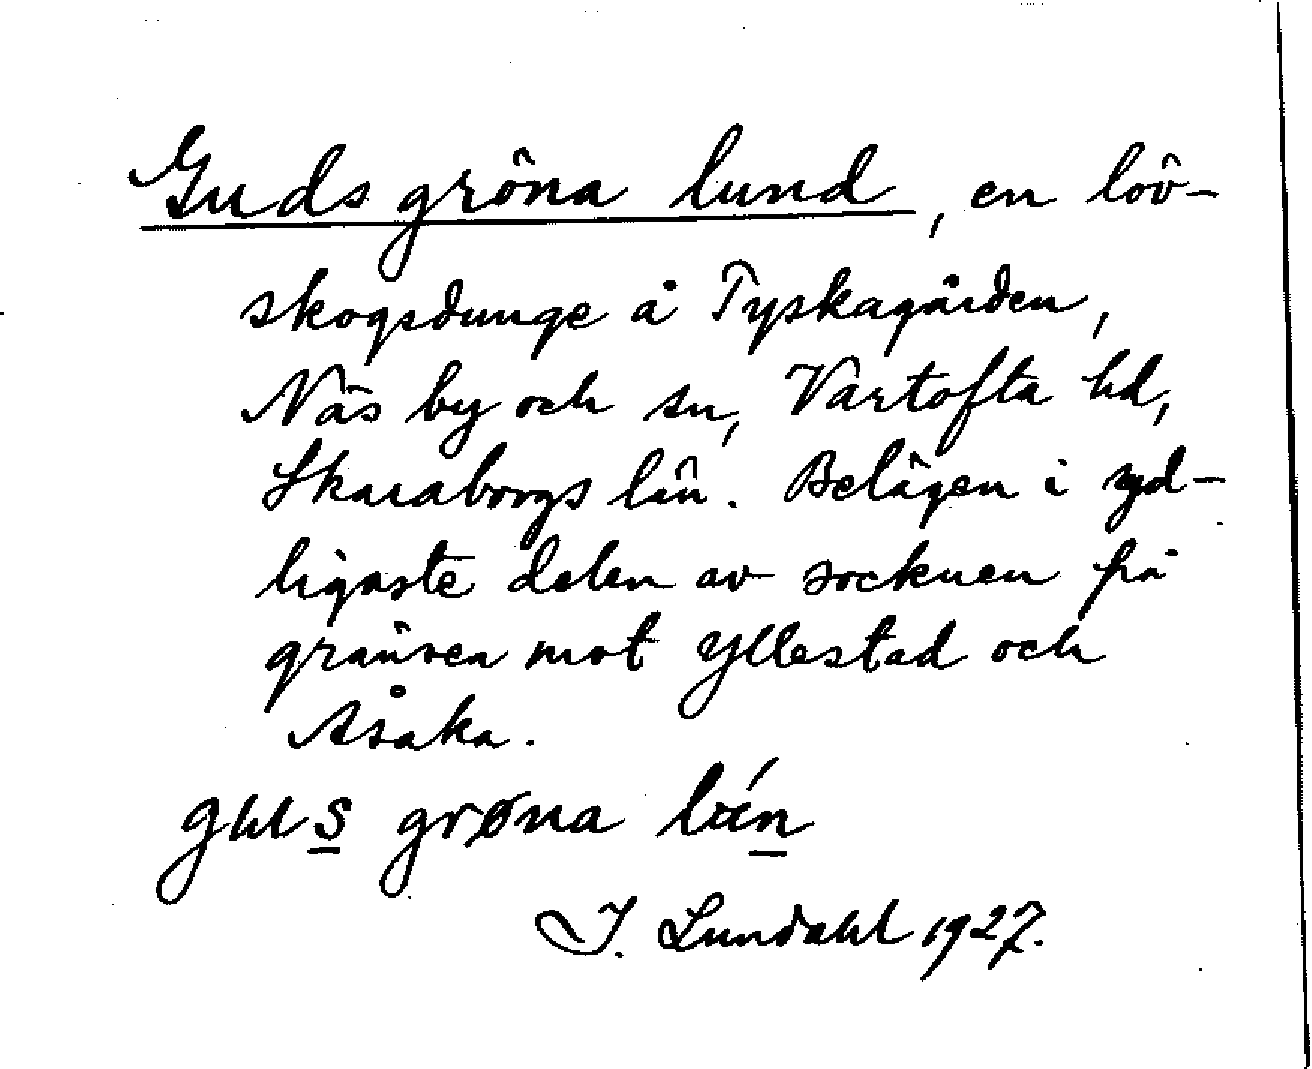 Guds gröna lund, en löv-
skogsdunge å Tyskagården,
Näs by och sn, Vartofta hd,
Skaraborgs län. Belägen i syd-
ligaste delen av socknen på
gränsen mot Yllestad och
Åsaka.
grøna
J. Lundahl 1927.